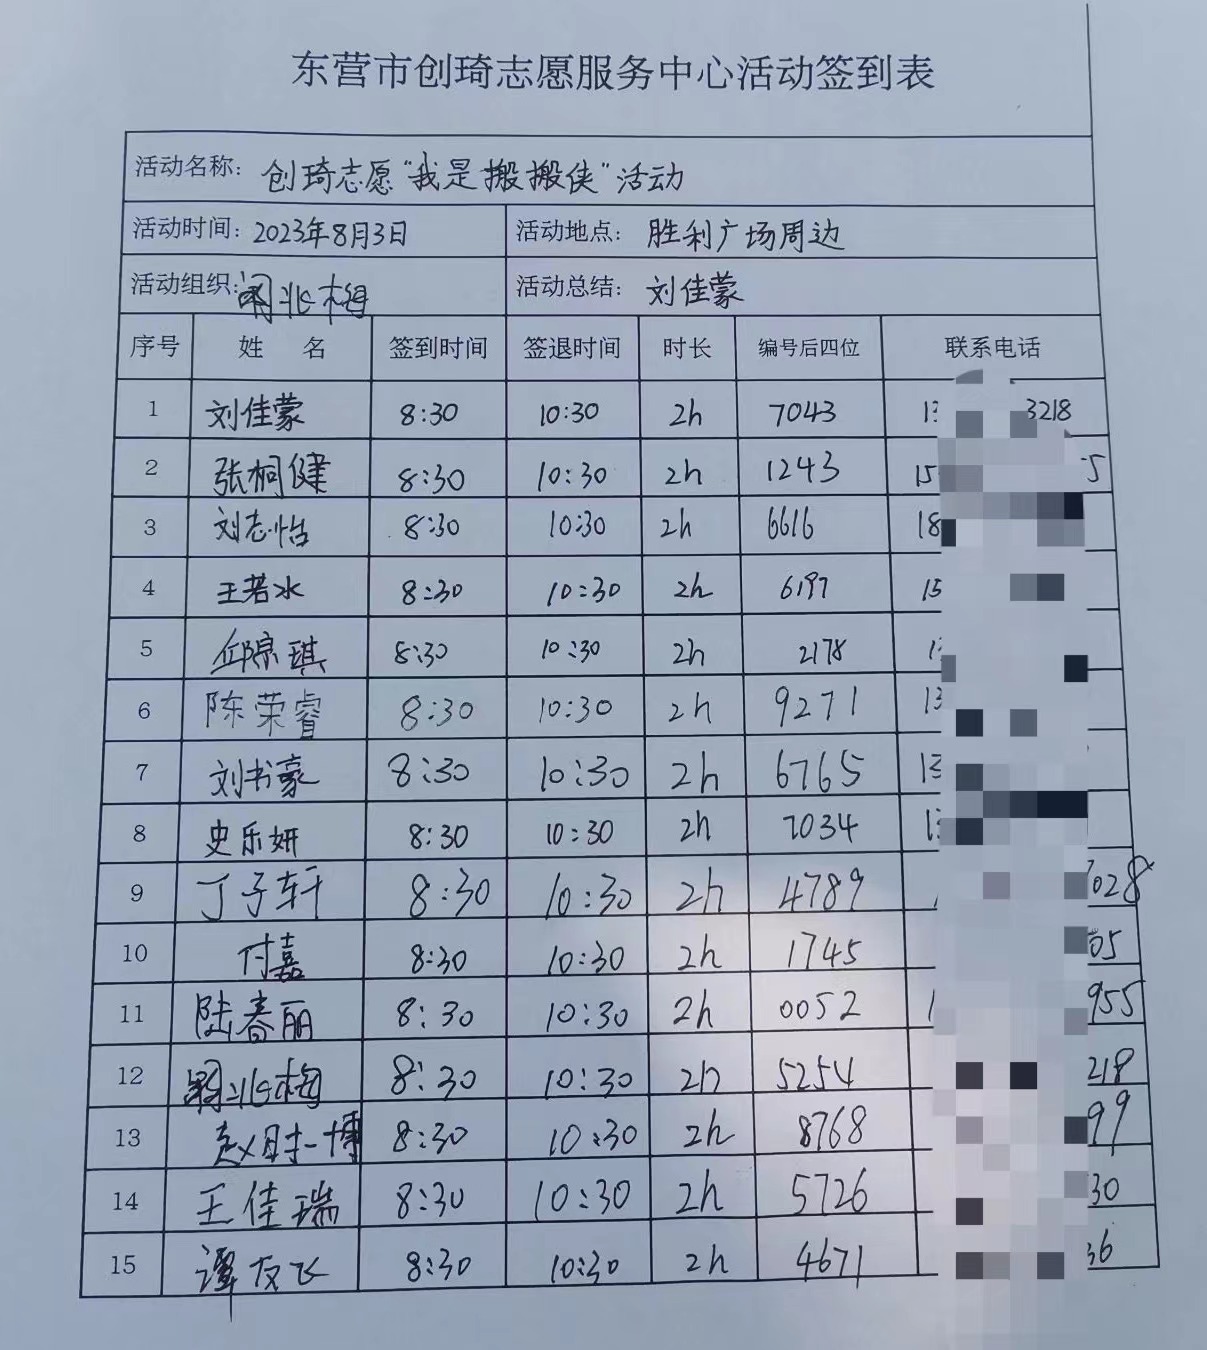 东营市创琦志愿服务中心活动签到表
活动名称：创琦志愿“我是搬搬侠”活动
活动时间：2023年8月3日 活动地点：胜利广场周边
活动组织： 活动总结：刘佳蒙
序号 姓 名 签到时间 签退时间 时长 编号后四位 联系电话
1 刘佳蒙 8:30 10:30 2h 7043 13 3218
2 张桐健 8:30 10:30 2h 1243 15 5
3 刘志怡 8:30 10:30 2h 6616 18
4 王若水 8:30 10:30 2h 6197 15
5 邱琮琪 8:30 10:30 2h 2178 1
6 陈荣睿 8:30 10:30 2h 9271 13
7 刘书豪 8:30 10:30 2h 6765 13
8 史乐妍 8:30 10:30 2h 7034 13
9 丁子轩 8:30 10:30 2h 4789 028
10 付嘉 8:30 10:30 2h 1745 05
11 陆春丽 8:30 10:30 2h 0052 1 955
12 8:30 10:30 2h 5254 218
13 赵 博 8:30 10:30 2h 8768 99
14 王佳瑞 8:30 10:30 2h 5726 30
15 谭友飞 8:30 10:30 2h 4671 36